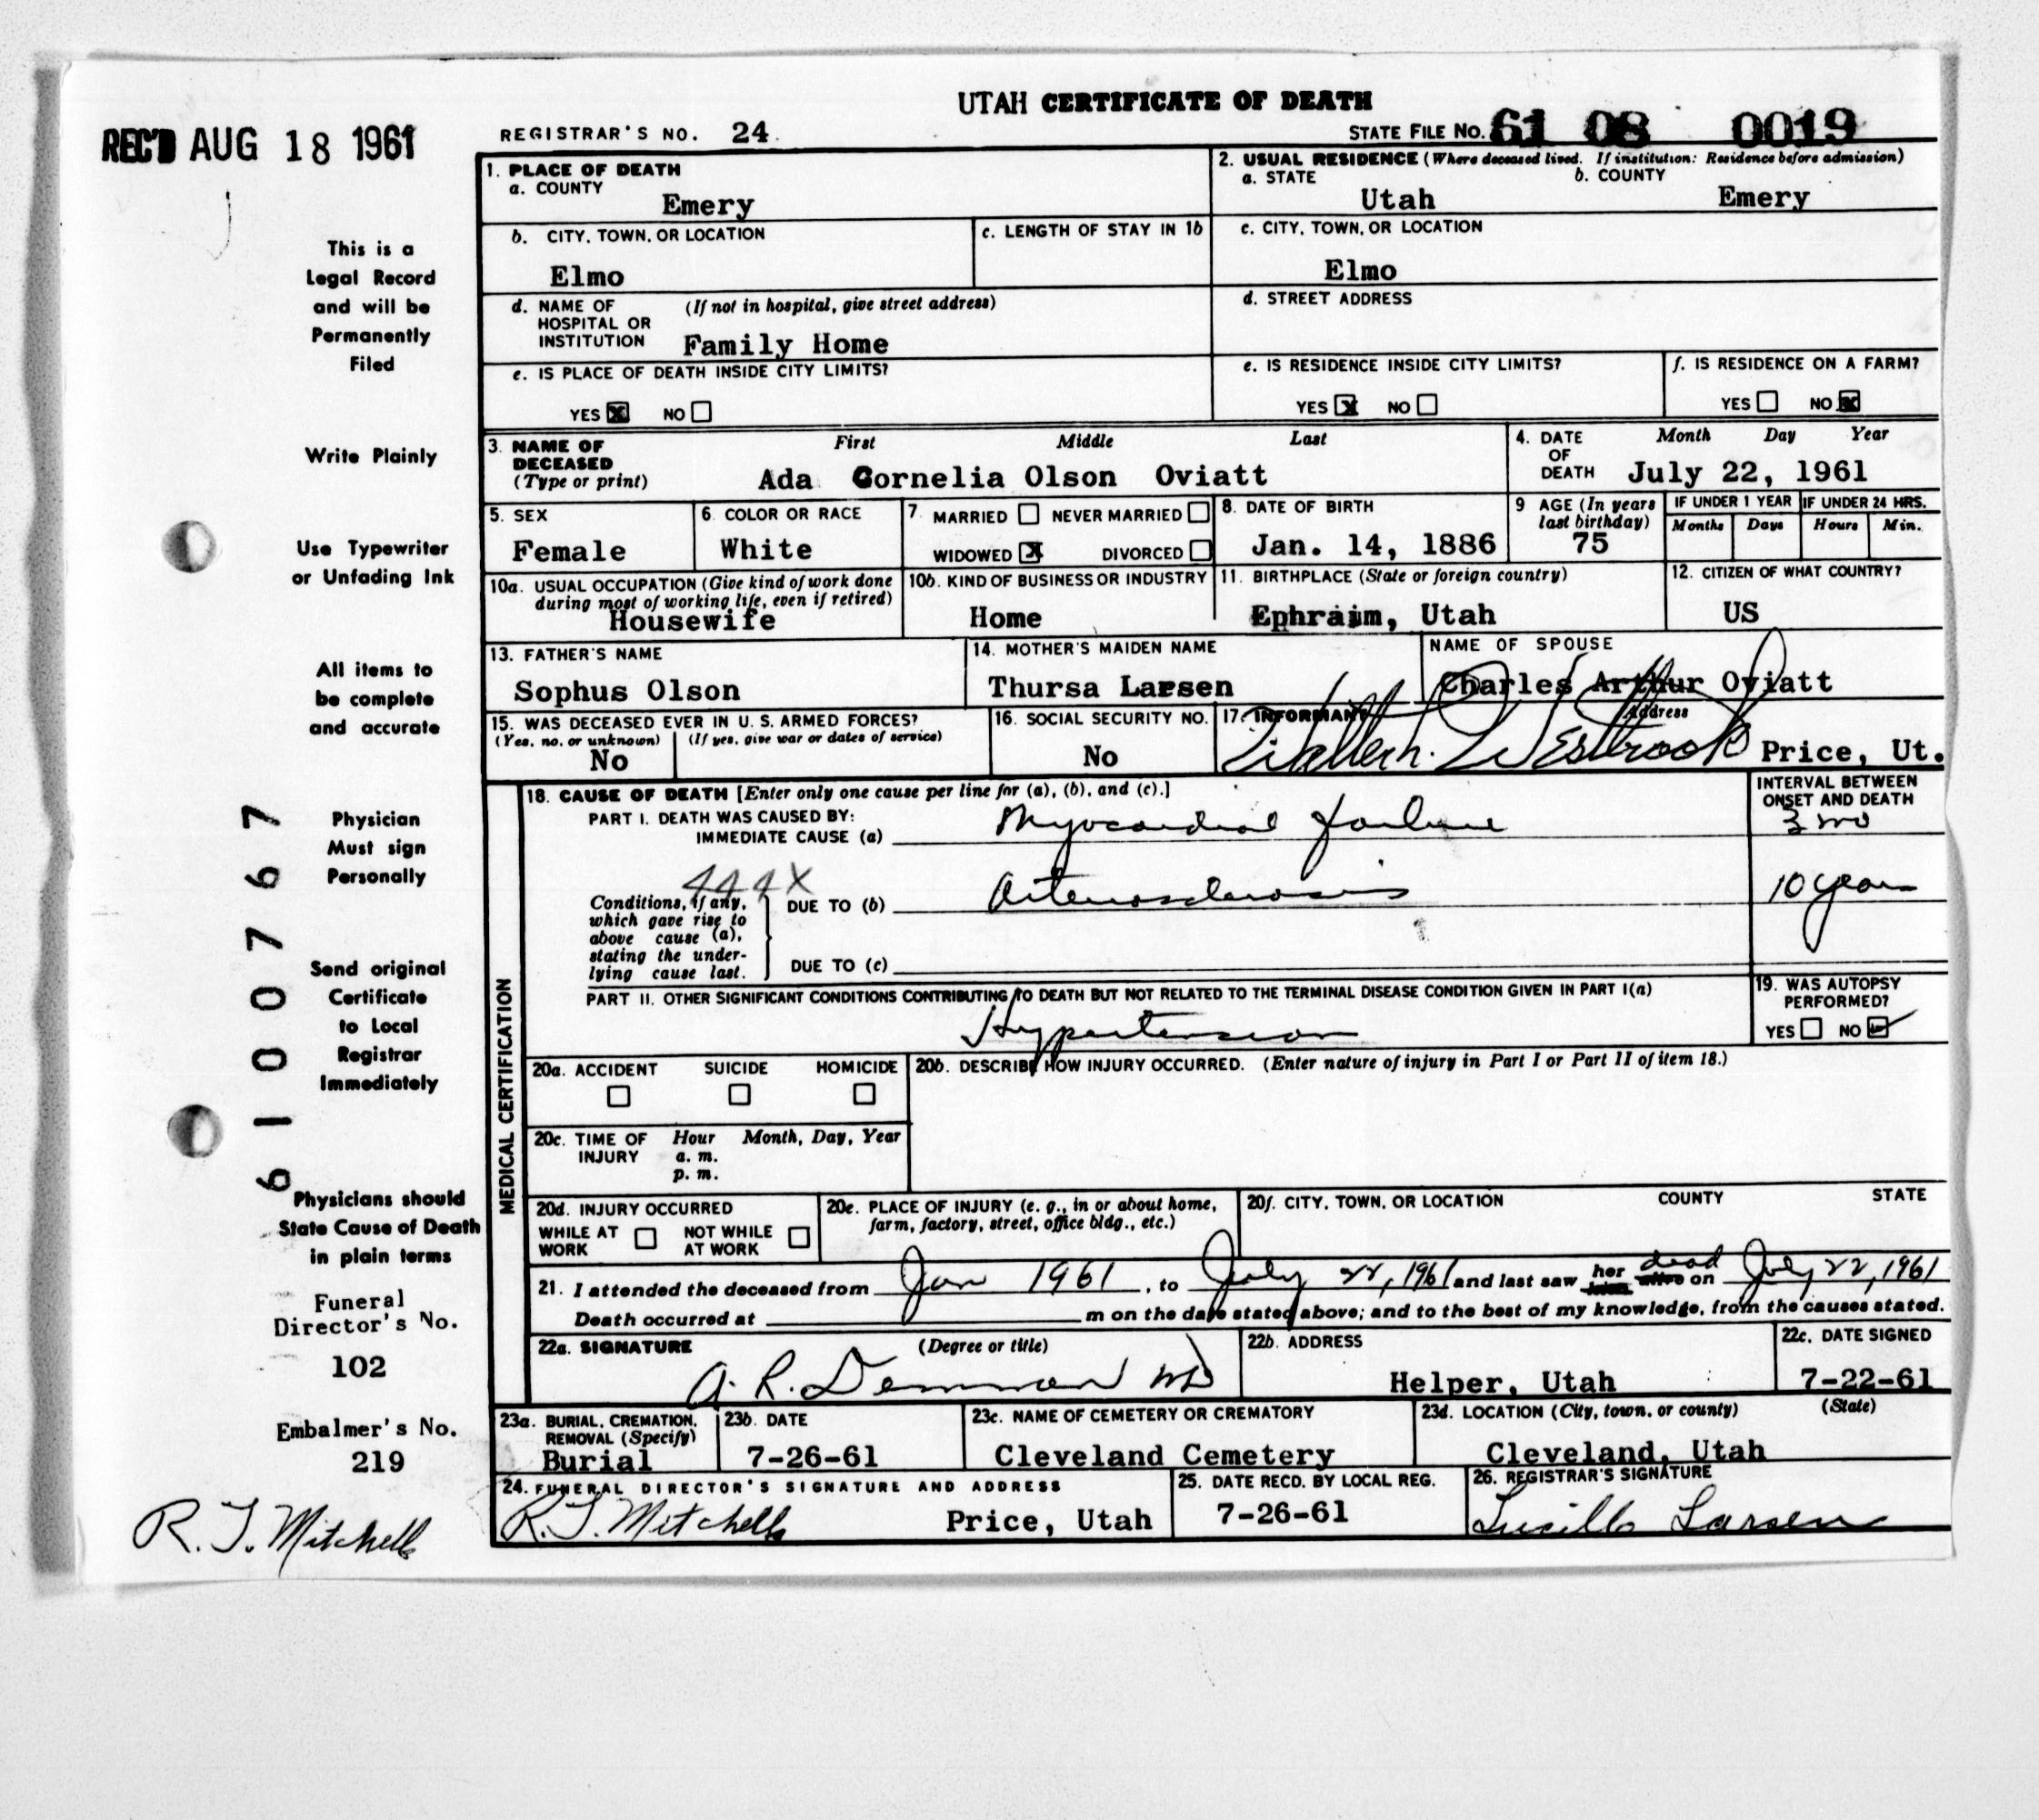 UTAH CERTIFICATE OF DEATH
REC'D AUG 18 1961
REGISTRAR'S NO. 24
STATE FILE No. 61 08 0019
1. PLACE OF DEATH
a. COUNTY
Emery
2. USUAL RESIDENCE (Where deceased lived. If institution: Residence before admission)
a. STATE b. COUNTY
Utah Emery
b. CITY, TOWN, OR LOCATION
Elmo
c. LENGTH OF STAY IN 1b
c. CITY, TOWN, OR LOCATION
Elmo
d. NAME OF (If not in hospital, give street address)
HOSPITAL OR
INSTITUTION Family Home
d. STREET ADDRESS
e. IS PLACE OF DEATH INSIDE CITY LIMITS?
YES X NO
e. IS RESIDENCE INSIDE CITY LIMITS?
YES X NO
f. IS RESIDENCE ON A FARM?
YES NO X
3. NAME OF First Middle Last
DECEASED
(Type or print) Ada Cornelia Olson Oviatt
4. DATE Month Day Year
OF
DEATH July 22, 1961
5. SEX
Female
6. COLOR OR RACE
White
7. MARRIED NEVER MARRIED
WIDOWED X DIVORCED
8. DATE OF BIRTH
Jan. 14, 1886
9 AGE (In years
last birthday)
75
IF UNDER 1 YEAR
Months Days
IF UNDER 24 HRS.
Hours Min.
10a. USUAL OCCUPATION (Give kind of work done
during most of working life, even if retired)
Housewife
10b. KIND OF BUSINESS OR INDUSTRY
Home
11. BIRTHPLACE (State or foreign country)
Ephraim, Utah
12. CITIZEN OF WHAT COUNTRY?
US
13. FATHER'S NAME
Sophus Olson
14. MOTHER'S MAIDEN NAME
Thursa Larsen
NAME OF SPOUSE
Charles Arthur Oviatt
15. WAS DECEASED EVER IN U. S. ARMED FORCES?
(Yes, no, or unknown) (If yes, give war or dates of service)
No
16. SOCIAL SECURITY NO.
No
17. INFORMANT Address
Westbrook Price, Ut.
MEDICAL CERTIFICATION
18. CAUSE OF DEATH [Enter only one cause per line for (a), (b), and (c).]
PART I. DEATH WAS CAUSED BY:
IMMEDIATE CAUSE (a) Myocardial failure
INTERVAL BETWEEN
ONSET AND DEATH
3 mo
444X
Conditions, if any,
which gave rise to
above cause (a),
stating the under-
lying cause last.
DUE TO (b) Arteriosclerosis
10 years
DUE TO (c)
PART II. OTHER SIGNIFICANT CONDITIONS CONTRIBUTING TO DEATH BUT NOT RELATED TO THE TERMINAL DISEASE CONDITION GIVEN IN PART I(a)
Hypertension
19. WAS AUTOPSY
PERFORMED?
YES NO
20a. ACCIDENT SUICIDE HOMICIDE
20b. DESCRIBE HOW INJURY OCCURRED. (Enter nature of injury in Part I or Part II of item 18.)
20c. TIME OF Hour Month, Day, Year
INJURY a. m.
p. m.
20d. INJURY OCCURRED
WHILE AT NOT WHILE
WORK AT WORK
20e. PLACE OF INJURY (e. g., in or about home,
farm, factory, street, office bldg., etc.)
20f. CITY, TOWN, OR LOCATION COUNTY STATE
21. I attended the deceased from Jan 1961, to July 22, 1961 and last saw her dead alive on July 22, 1961
Death occurred at m on the date stated above; and to the best of my knowledge, from the causes stated.
22a. SIGNATURE (Degree or title)
A. R. Demman MD
22b. ADDRESS
Helper, Utah
22c. DATE SIGNED
7-22-61
23a. BURIAL, CREMATION,
REMOVAL (Specify)
Burial
23b. DATE
7-26-61
23c. NAME OF CEMETERY OR CREMATORY
Cleveland Cemetery
23d. LOCATION (City, town, or county) (State)
Cleveland, Utah
24. FUNERAL DIRECTOR'S SIGNATURE AND ADDRESS
R. T. Mitchell Price, Utah
25. DATE RECD. BY LOCAL REG.
7-26-61
26. REGISTRAR'S SIGNATURE
Lucille Larsen
This is a
Legal Record
and will be
Permanently
Filed
Write Plainly
Use Typewriter
or Unfading Ink
All items to
be complete
and accurate
Physician
Must sign
Personally
Send original
Certificate
to Local
Registrar
Immediately
Physicians should
State Cause of Death
in plain terms
Funeral
Director's No.
102
Embalmer's No.
219
R. T. Mitchell
61 00767